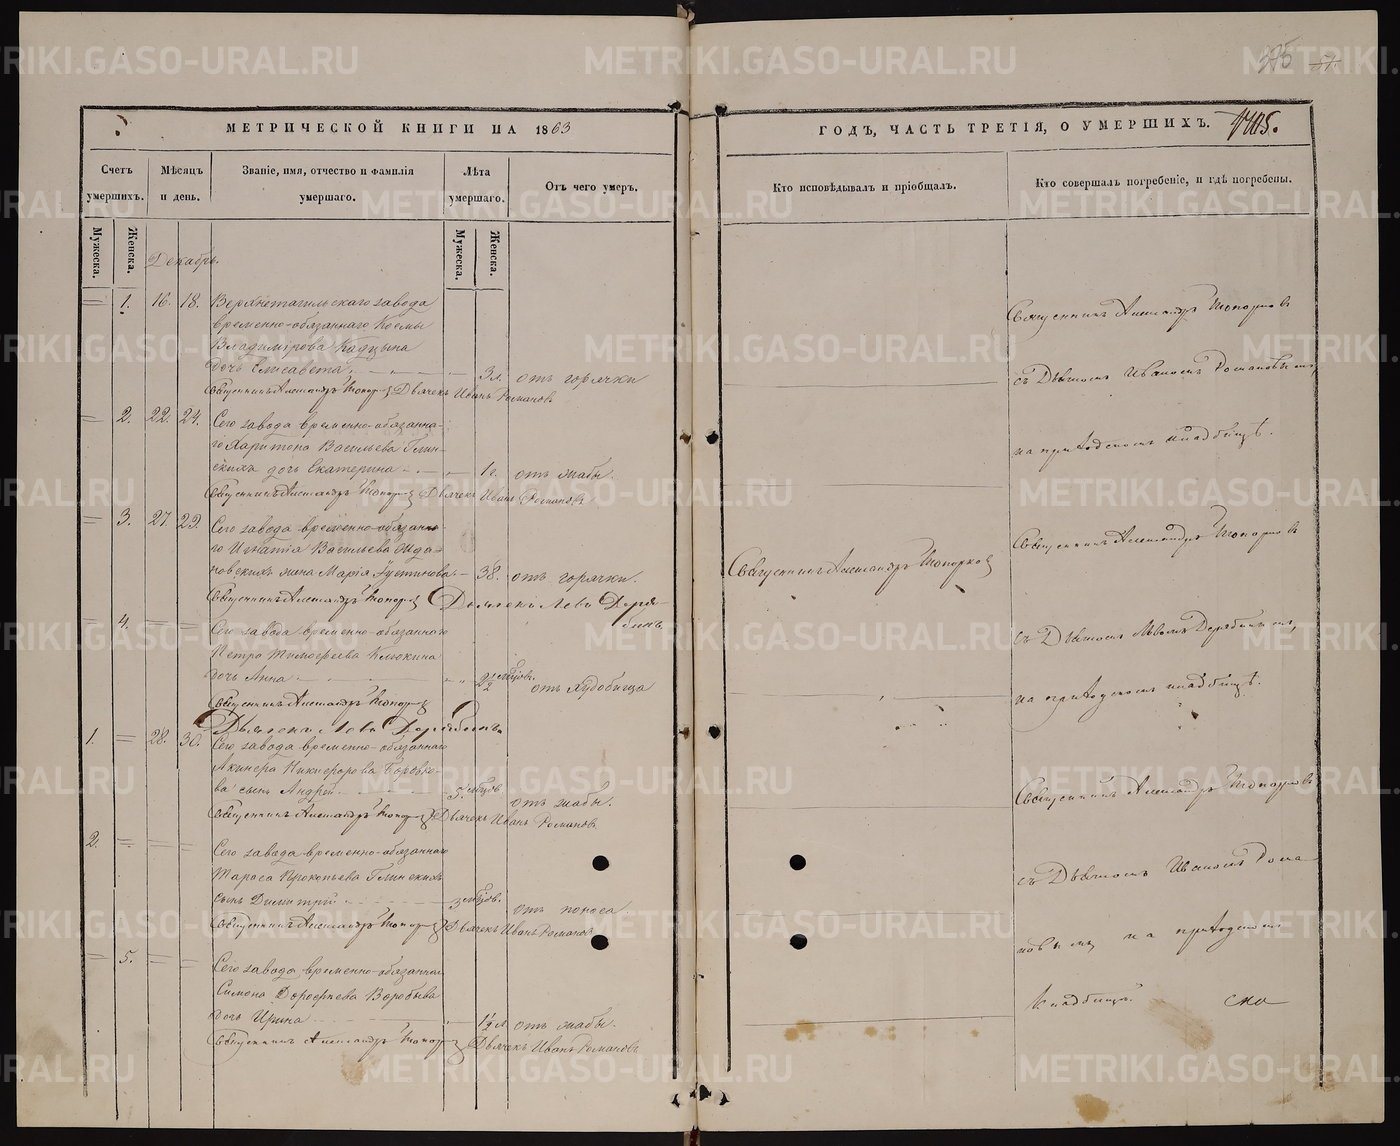 МЕТРИЧЕСКОЙ КНИГИ НА 1863
Счетъ умершихъ.
Мѣсяцъ и день.
Званіе, имя, отчество и фамилія умершаго.
Лѣта умершаго.
Отъ чего умеръ.
Мужеска.
Женска.
Мужеска.
Женска.
Декабрь.
1. 16. 18. Верхнетагильскаго завода
временно-обязаннаго Козмы
Владимірова Кадцына
дочь Елисавета 3 л. отъ горячки
Священникъ Александръ Топорковъ Дьячекъ Иванъ Романовъ
2. 22. 24. Сего завода временно-обязанна-
го Харитона Васильева Глин-
скихъ дочь Екатерина 1 г. отъ жабы.
Священникъ Александръ Топорковъ Дьячекъ Иванъ Романовъ
3. 27. 29. Сего завода временно-обязанна-
го Игнатія Васильева Жда-
новскихъ жена Марія Іустинова 38. отъ горячки.
Священникъ Александръ Топорковъ Дьячекъ Левъ Деря-
бинъ
4. Сего завода временно-обязаннаго
Петра Тимофеева Клюкина
дочь Анна 2½ мѣсцов. отъ худобища
Священникъ Александръ Топорковъ
Дьячекъ Левъ Дерябинъ
1. 28. 30. Сего завода временно-обязаннаго
Акинфа Никифорова Боровко-
ва сынъ Андрей 5 мѣсцов. отъ жабы.
Священникъ Александръ Топорковъ Дьячекъ Иванъ Романовъ
2. Сего завода временно-обязаннаго
Тараса Прокопьева Глинскихъ
сынъ Димитрій 3 мѣсцов. отъ поноса.
Священникъ Александръ Топорковъ Дьячекъ Иванъ Романовъ
5. Сего завода временно-обязаннаго
Симона Дорофеева Воробьева
дочь Ирина 1½ л. отъ жабы.
Священникъ Александръ Топорковъ Дьячекъ Иванъ Романовъ
ГОДЪ, ЧАСТЬ ТРЕТІЯ, О УМЕРШИХЪ.
Кто исповѣдывалъ и пріобщалъ.
Кто совершалъ погребеніе, и гдѣ погребены.
Священникъ Александръ Топорковъ
Священникъ Александръ Топорковъ
съ Дьячкомъ Иваномъ Романовымъ,
на приходскомъ кладбищѣ.
Священникъ Александръ Топорковъ
съ Дьячкомъ Львомъ Дерябинымъ,
на приходскомъ кладбищѣ.
Священникъ Александръ Топорковъ
съ Дьячкомъ Иваномъ Рома-
новымъ, на приходскомъ
кладбищѣ.
METRIKI.GASO-URAL.RU